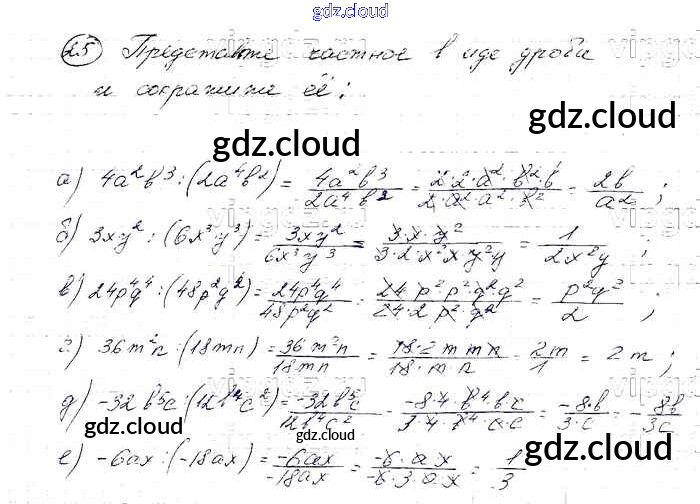 gdz.cloud
25 Представьте частное в виде дроби
и сократите её:
gdz.cloud
gdz.cloud
а) 4a²b³ : (2a⁴b²) = 4a²b³/2a⁴b² = 2·2·a²·b²·b/2·a²·a²·b² = 2b/a² ;
б) 3xy² : (6x³y³) = 3xy²/6x³y³ = 3·x·y²/3·2·x²·x·y²y = 1/2x²y ;
в) 24p⁴q⁴ : (48p²q²) = 24p⁴q⁴/48p²q² = 24·p²p²·q²q²/24·2·p²·q² = p²q²/2 ;
г) 36m²n : (18mn) = 36m²n/18mn = 18·2·m·m·n/18·m·n = 2m/1 = 2m ;
д) -32b⁵c : (12b⁴c²) = -32b⁵c/12b⁴c² = -8·4·b⁴·b·c/3·4·b⁴·c·c = -8·b/3·c = -8b/3c
gdz.cloud
gdz.cloud
gdz.cloud
е) -6ax : (-18ax) = -6ax/-18ax = -6·a·x/-6·3·a·x = 1/3
gdz.cloud